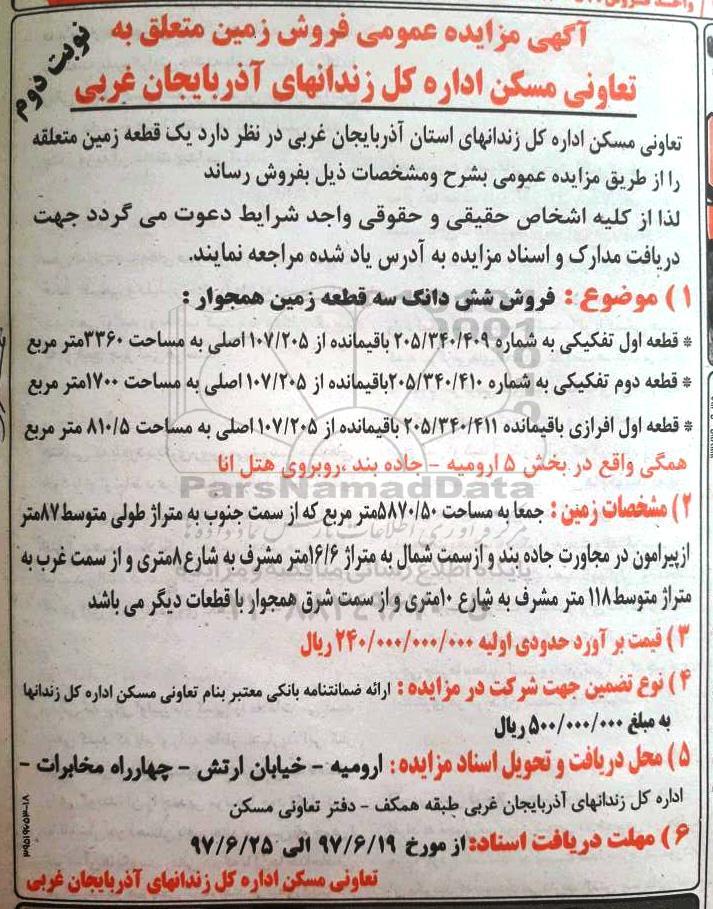 آگهی مزایده عمومی فروش زمین متعلق به
تعاونی مسکن اداره کل زندانهای آذربایجان غربی
نوبت دوم
تعاونی مسکن اداره کل زندانهای استان آذربایجان غربی در نظر دارد یک قطعه زمین متعلقه
را از طریق مزایده عمومی بشرح ومشخصات ذیل بفروش رساند
لذا از کلیه اشخاص حقیقی و حقوقی واجد شرایط دعوت می گردد جهت
دریافت مدارک و اسناد مزایده به آدرس یاد شده مراجعه نمایند.
۱) موضوع : فروش شش دانگ سه قطعه زمین همجوار :
* قطعه اول تفکیکی به شماره ۲۰۵/۳۴۰/۴۰۹ باقیمانده از ۱۰۷/۲۰۵ اصلی به مساحت ۳۳۶۰متر مربع
* قطعه دوم تفکیکی به شماره ۲۰۵/۳۴۰/۴۱۰باقیمانده از ۱۰۷/۲۰۵ اصلی به مساحت ۱۷۰۰متر مربع
* قطعه اول افرازی باقیمانده ۲۰۵/۳۴۰/۴۱۱ باقیمانده از ۱۰۷/۲۰۵ اصلی به مساحت ۸۱۰/۵ متر مربع
همگی واقع در بخش ۵ ارومیه - جاده بند ،روبروی هتل انا
ParsNamadData
۲) مشخصات زمین : جمعا به مساحت ۵۸۷۰/۵۰متر مربع که از سمت جنوب به متراژ طولی متوسط۸۷متر
ازپیرامون در مجاورت جاده بند و ازسمت شمال به متراژ ۱۶/۶متر مشرف به شارع۸متری و از سمت غرب به
متراژ متوسط۱۱۸ متر مشرف به شارع ۱۰متری و از سمت شرق همجوار با قطعات دیگر می باشد
۳) قیمت بر آورد حدودی اولیه ۲۴۰/۰۰۰/۰۰۰/۰۰۰ ریال
۴) نوع تضمین جهت شرکت در مزایده : ارائه ضمانتنامه بانکی معتبر بنام تعاونی مسکن اداره کل زندانها
به مبلغ ۵۰۰/۰۰۰/۰۰۰ ریال
۵) محل دریافت و تحویل اسناد مزایده : ارومیه - خیابان ارتش - چهارراه مخابرات -
اداره کل زندانهای آذربایجان غربی طبقه همکف - دفتر تعاونی مسکن
۶) مهلت دریافت اسناد: از مورخ ۹۷/۶/۱۹ الی ۹۷/۶/۲۵
تعاونی مسکن اداره کل زندانهای آذربایجان غربی